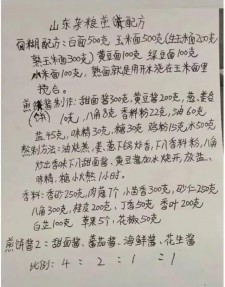 山东杂粮煎饼配方
面糊配方：白面500克 玉米面500克(生玉米面250克
熟玉米面300克)黄豆面100克 绿豆面100克
小米面100克，熟面就是用开水浇在玉米面里
搅合。
煎酱制作：甜面酱300克，黄豆酱200克，葱、姜
10克，八角3克 香料粉22克，油60克
盐45克，味精30克，糖30克 鸡粉15克水500克
熬制方法：油烧热，姜、葱下锅炒香，下入香料粉，八角
炒出香味下入甜面酱，黄豆酱加水烧开，放盐、
味精、糖小火熬1小时。
香料：香砂250克，肉蔻7个 小茴香300克，砂仁250克
八角300克，桂皮200克，丁香50克 香叶200克
白芷100克 草果5个，花椒50克
煎饼酱2：甜面酱、蕃茄酱、海鲜酱、花生酱
比例：4：2：1：1